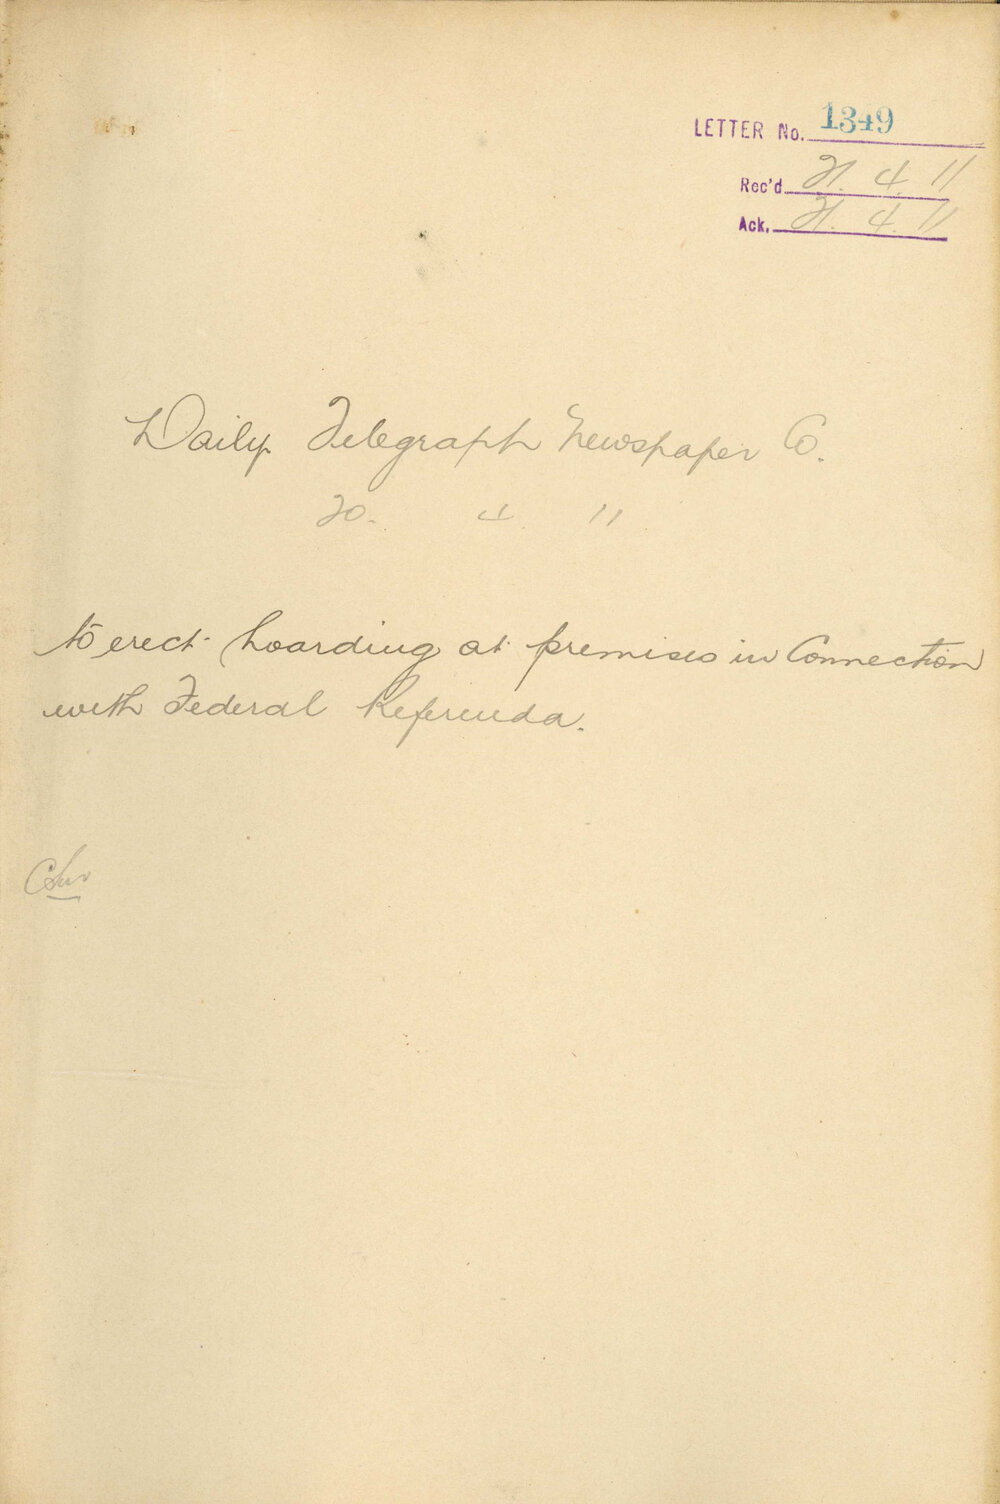 LETTER No. 1349
Rec'd 21. 4. 11
Ack. 21. 4. 11
Daily Telegraph Newspaper Co.
20. 4 11
to erect hoarding at premises in Connection
with Federal Referenda.